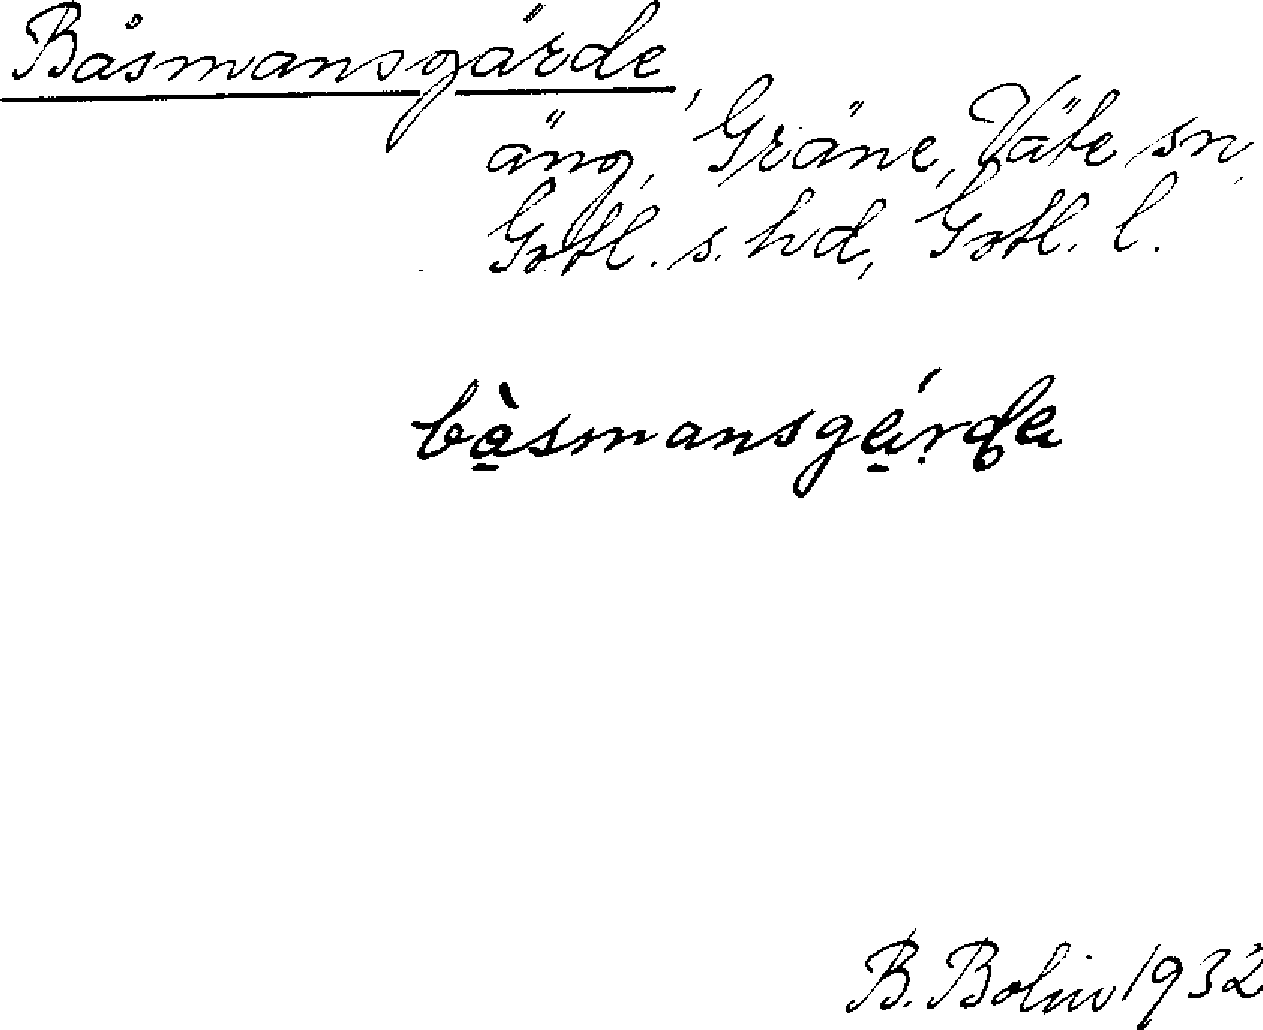 Båsmansgärde,
äng, Gräne, Väte sn,
Gotl. s. hd, Gotl. l.
bàsmansgárda
B. Bolin 1932